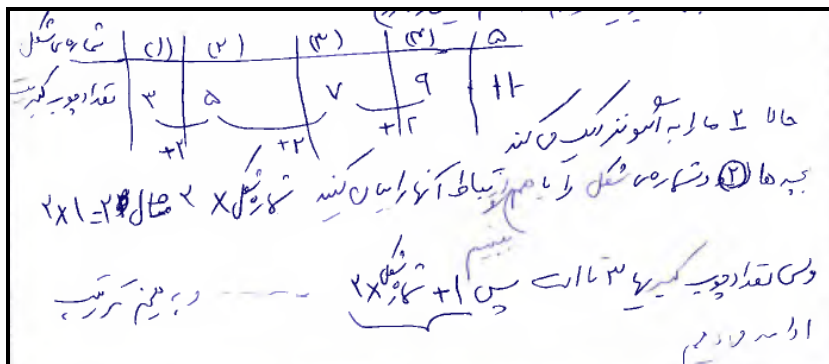 شماره‌ی شکل | (۱) | (۲) | (۳) | (۴) | ۵
تعداد چوب کبریت | ۳ | ۵ | ۷ | ۹ | ۱۱
+۲ +۲ +۲
حالا ۲ ما را به الگو نزدیک می کند
بچه ها ۲ و شماره‌ی شکل را با هم ببینیم ارتباط آنها را بیان کنید شماره شکل × ۲ مثال ۲×۱=۲
ولی تعداد چوب کبریتها ۳ تا است پس ۱ + شماره شکل × ۲ ------ و به همین ترتیب
ادامه می دهیم